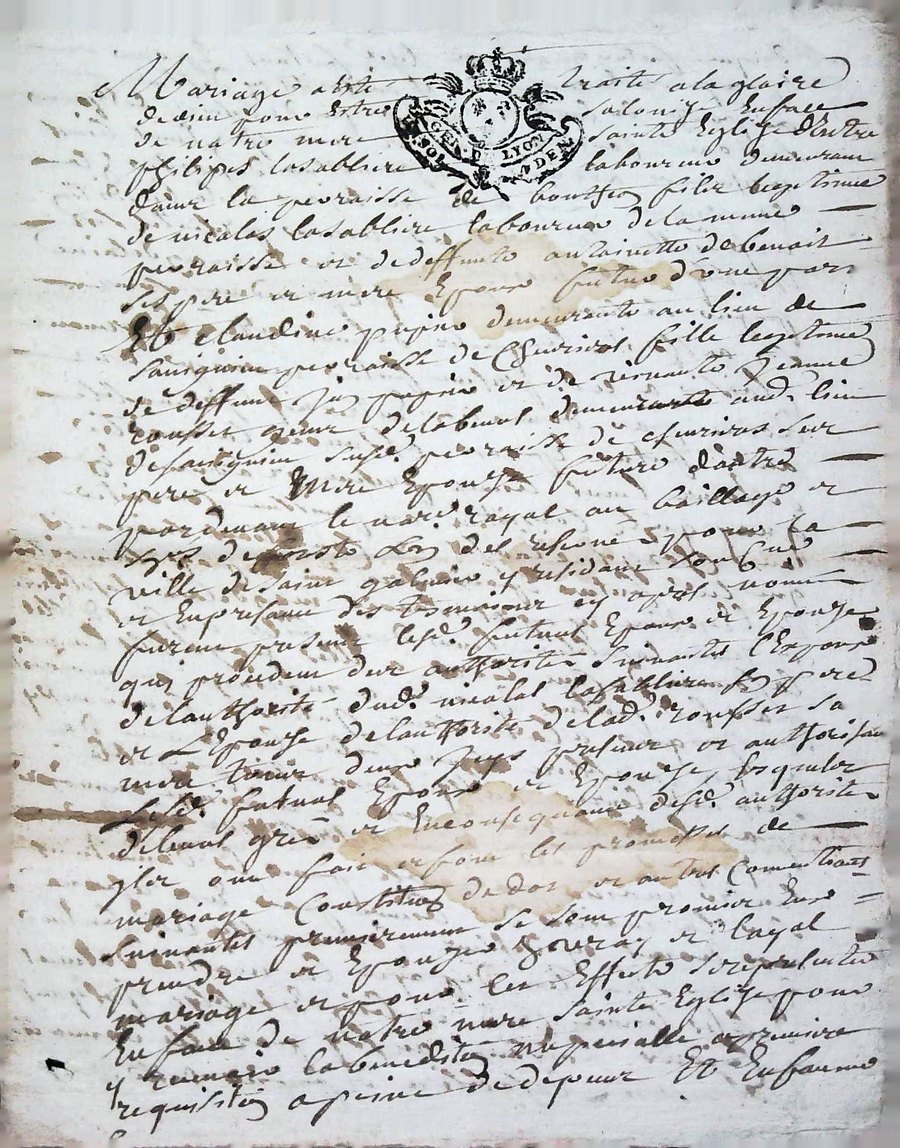 Mariage a esté traité a la gloire
de dieu pour estre salonisé En face
de natre mere sainte Eglize Entre
philipes lasabliere laboureur demeurant
dans la perroisse de bouthéon filz legitime
de nicolas lasabliere laboureur de la mesme
perroisse et de deffunte antoinette de benoit
ses pere et mere Epoux futur d'une part
Et claudine papin demeurante au lieu de
perroisse de Chevrieres fille legitime
de deffunt papin et de vivante Jeanne
rousset demeurante aud. lieu
de susd. perroisse de chevrieres ses
pere et Mere Epouze future d'autre
par devant le no.re royal au baillage et
de forests reserve pour la
ville de saint galmier y residant soubsigné
et En presence des temoins cy apres nommés
furent presents lesd. futurs Epoux et Epouze
qui procedent des authorités suivantes l'Epoux
de l'authorité dud. nicolas lasabliere son pere
et L'Epouze de l'authorité de lad. rousset sa
mere tous deux Icys presents et authorisan
Lesd. futurs Epoux et Epouze, lesquels
de leurs grés et En consequance desd. authorités
ont fait et font les promesses de
mariage Constitution de dot et autres Conventions
suivantes premierement se sont promis Eux
prendre et Epouzer En vray et loyal
mariage et pour cet Effect se representer
En face de natre mere sainte Eglize pour
y recevoir la benediction nuptialle a premiere
requisition a peine de depens Et En faveur
GEN. D. LYON
SOL DEN